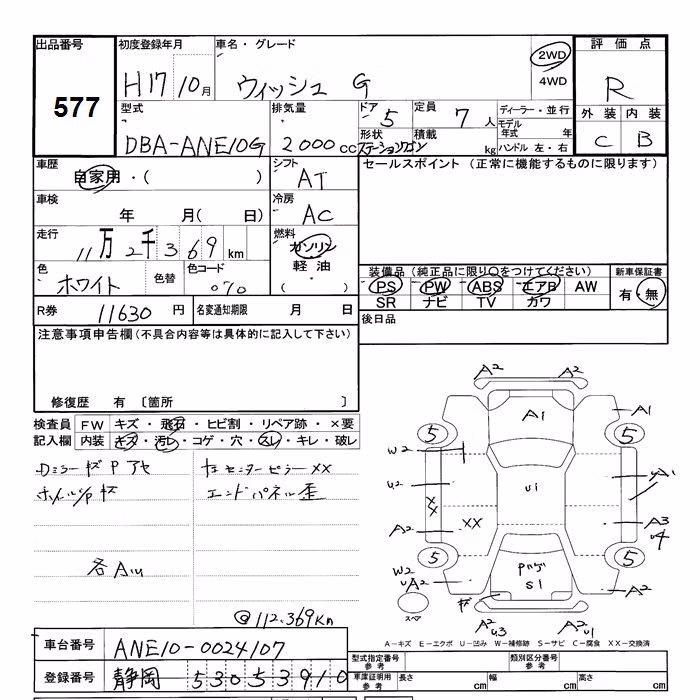 出品番号 初度登録年月 車名・グレード 評価点
577 H17 10月 ウィッシュ G 2WD 4WD R
型式 排気量 ドア 5 定員 7人 ディーラー・並行 外装 内装
DBA-ANE10G 2000cc 形状 ステーションワゴン 積載 kg モデル年式 年 ハンドル 左・右 C B
車歴 自家用・( ) シフト AT セールスポイント (正常に機能するものに限ります)
車検 年 月( 日) 冷房 AC
走行 11万2千369km 燃料 ガソリン 軽油 ( )
色 ホワイト 色替 色コード 070 装備品 (純正品に限り○をつけてください) 新車保証書
PS PW ABS エアB AW 有・無
SR ナビ TV カワ
R券 11630円 名変通知期限 月 日 後日品
注意事項申告欄 (不具合内容等は具体的に記入して下さい)
修復歴 有 〔箇所 〕
検査員 FW キズ・飛石・ヒビ割・リペア跡・×要
記入欄 内装 キズ・汚レ・コゲ・穴・スレ・キレ・破レ
Dミラーキズ Pアセ
センターピラーXX
キズ
エンドパネル歪
各AU
@112.369Km
A2 A2
A1 A1
5 5
W2
U2 U1 A1
XX XX A3 U4
A2
5 5
W2
UA2 Pハゲ S1 A2
キズ
スペア A2 U3 A2 U1
A-キズ E-エクボ U-凹み W-補修跡 S-サビ C-腐食 XX-交換済
車台番号 ANE10-0024107
型式指定番号 参考 類別区分番号 参考
登録番号 静岡 530 5 3910
車庫証明用 参考 長さ cm 幅 cm 高さ cm